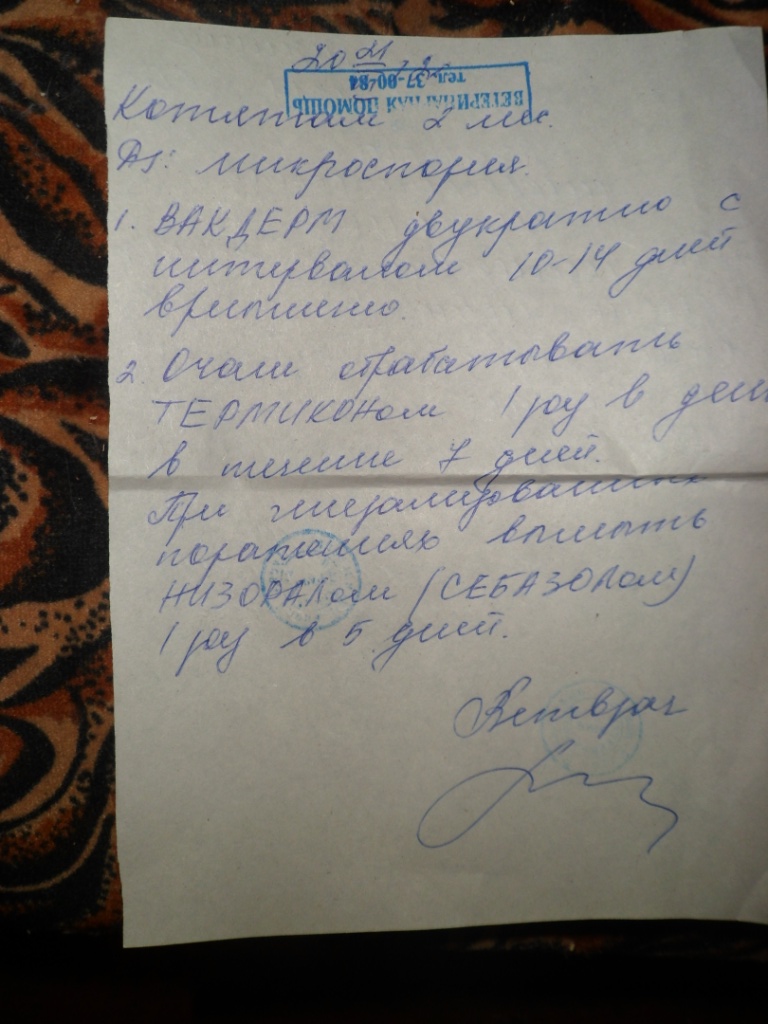 20 21
ВЕТЕРИНАРНАЯ ПОМОЩЬ
тел. 37-00-84
Котятам 2 мес.
Ds: микроспория.
1. ВАКДЕРМ двукратно с
интервалом 10-14 дней
врутишечно.
2. Очаги обрабатывать
ТЕРМИКОНом 1 раз в день
в течение 7 дней.
При
поражениях вымыть
НИЗОРАЛом (СЕБАЗОЛом)
1 раз в 5 дней.
Ветврач